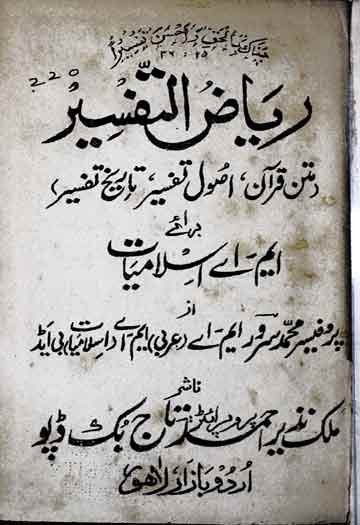 جئناک بالحق و احسن تفسیرا
۲۵ : ۳۶
220
ریاضُ التفسیر
(متن قرآن، اصول تفسیر، تاریخ تفسیر)
برائے
ایم ۔ اے اسلامیات
از
پروفیسر محمد سرور ایم ۔ اے (عربی) ایم ۔ اے (اسلامیات) بی ایڈ
ناشر
ملک نذیر احمد پروپرائٹر تاج بک ڈپو
اردو بازار لاہور